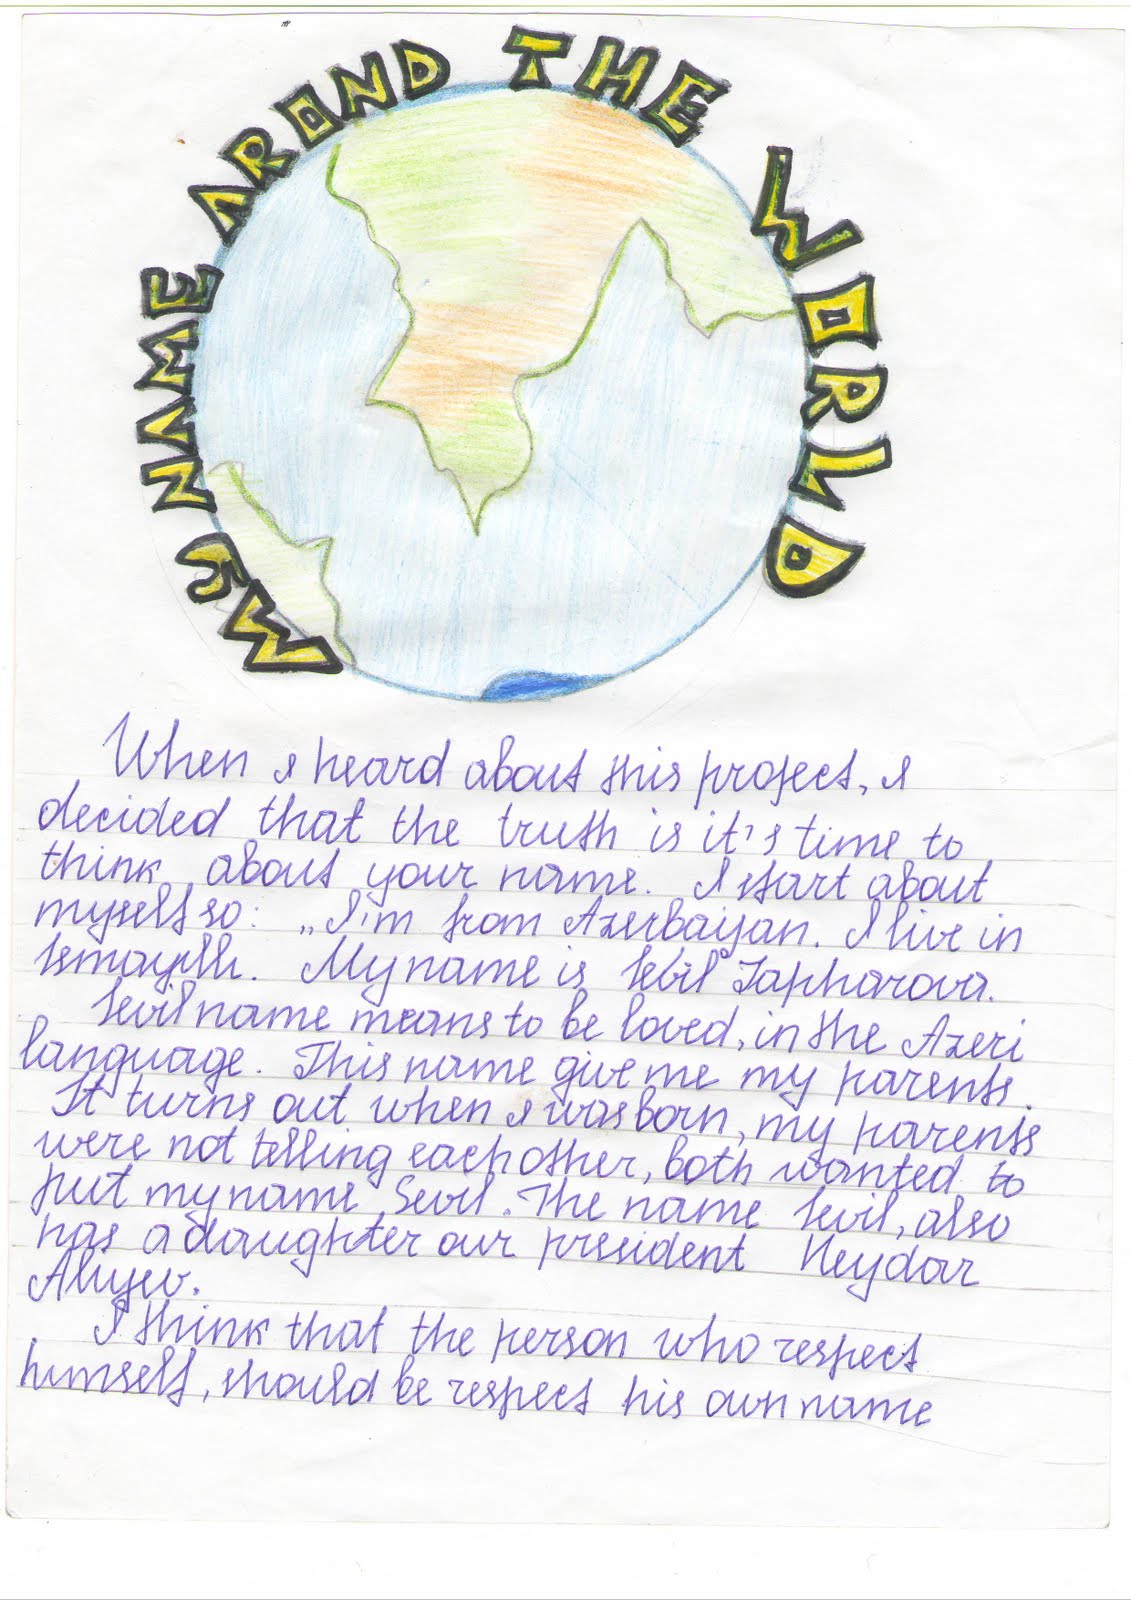 MY NAME AROND THE WORLD
When I heard about this project, I
decided that the truth is it's time to
think about your name. I start about
myself so: „I'm from Azerbaijan. I live in
Ismayilli. My name is Sevil Japharova.
Sevil name means to be loved, in the Azeri
language. This name give me my parents.
It turns out when I was born, my parents
were not telling each other, both wanted to
put my name Sevil. The name Sevil, also
has a daughter our president Heydar
Aliyev.
I think that the person who respect
himself, should be respect his own name